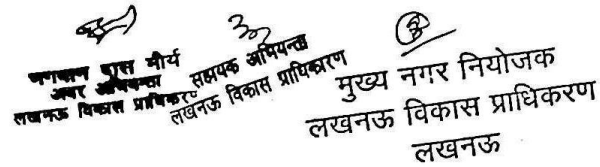 दास मौर्य
अवर अभियन्ता
लखनऊ विकास प्राधिकरण
सहायक अभियन्ता
लखनऊ विकास प्राधिकरण
मुख्य नगर नियोजक
लखनऊ विकास प्राधिकरण
लखनऊ